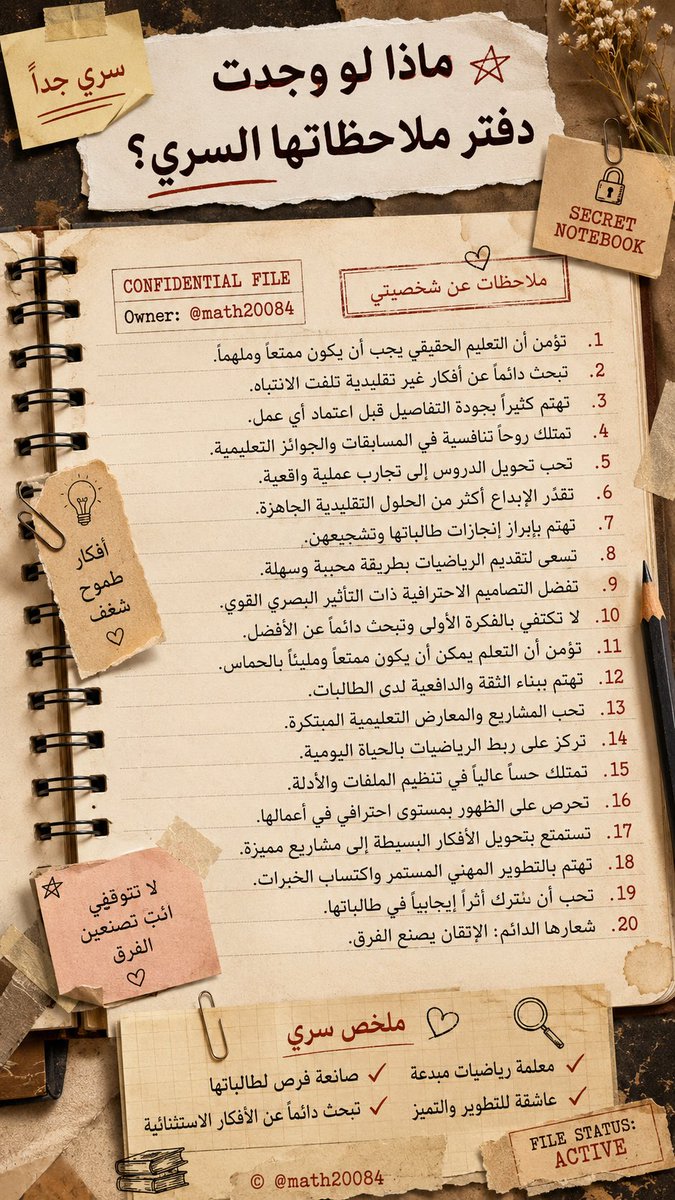 سري جداً
ماذا لو وجدت
دفتر ملاحظاتها السري؟
SECRET
NOTEBOOK
CONFIDENTIAL FILE
Owner: @math20084
ملاحظات عن شخصيتي
1. تؤمن أن التعليم الحقيقي يجب أن يكون ممتعاً وملهماً.
2. تبحث دائماً عن أفكار غير تقليدية تلفت الانتباه.
3. تهتم كثيراً بجودة التفاصيل قبل اعتماد أي عمل.
4. تمتلك روحاً تنافسية في المسابقات والجوائز التعليمية.
5. تحب تحويل الدروس إلى تجارب عملية واقعية.
6. تقدّر الإبداع أكثر من الحلول التقليدية الجاهزة.
7. تهتم بإبراز إنجازات طالباتها وتشجيعهن.
8. تسعى لتقديم الرياضيات بطريقة محببة وسهلة.
9. تفضل التصاميم الاحترافية ذات التأثير البصري القوي.
10. لا تكتفي بالفكرة الأولى وتبحث دائماً عن الأفضل.
11. تؤمن أن التعلم يمكن أن يكون ممتعاً ومليئاً بالحماس.
12. تهتم ببناء الثقة والدافعية لدى الطالبات.
13. تحب المشاريع والمعارض التعليمية المبتكرة.
14. تركز على ربط الرياضيات بالحياة اليومية.
15. تمتلك حساً عالياً في تنظيم الملفات والأدلة.
16. تحرص على الظهور بمستوى احترافي في أعمالها.
17. تستمتع بتحويل الأفكار البسيطة إلى مشاريع مميزة.
18. تهتم بالتطوير المهني المستمر واكتساب الخبرات.
19. تحب أن تترك أثراً إيجابياً في طالباتها.
20. شعارها الدائم: الإتقان يصنع الفرق.
أفكار
طموح
شغف
لا تتوقفي
انتِ تصنعين
الفرق
ملخص سري
✓ معلمة رياضيات مبدعة
✓ صانعة فرص لطالباتها
✓ عاشقة للتطوير والتميز
✓ تبحث دائماً عن الأفكار الاستثنائية
FILE STATUS:
ACTIVE
© @math20084